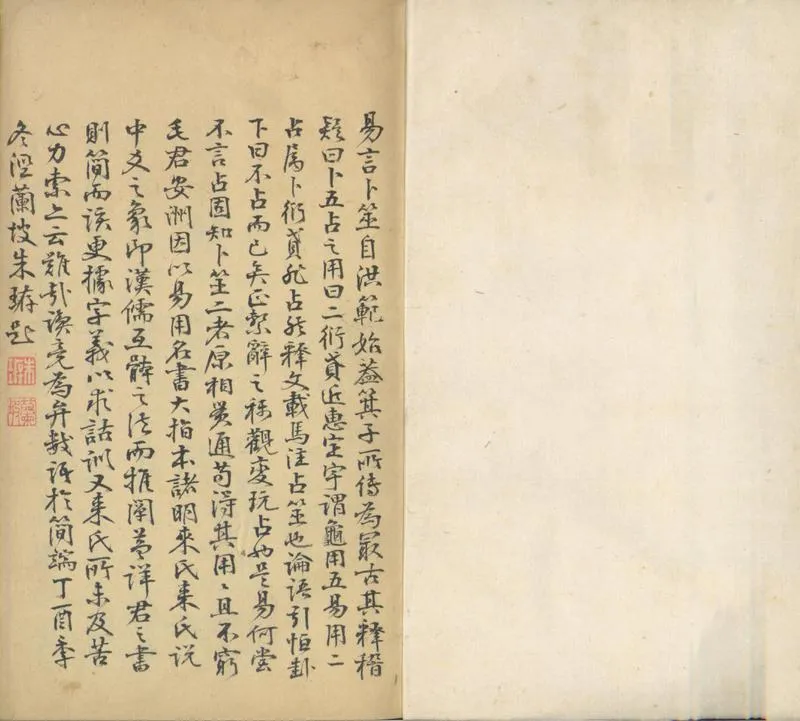 易言卜筮自洪範始葢箕子所傳為最古其釋稽
疑曰卜五占之用曰二衍貣近惠定宇謂龜用五易用二
占屬卜衍貣非占然釋文載馬注占筮也論語引恒卦
下曰不占而已矣正繫辭之稱觀變玩占也是易何嘗
不言占固知卜筮二者原相貫通苟得其用〻且不窮
毛君安洲因以易用名書大指本諸明來氏來氏說
中爻之象即漢儒互體之法而推闡益詳君之書
則簡而該更據字義以求詁訓又來氏所未及苦
心力索云難哉讀竟為弁數語於簡端丁酉季
冬涇蘭坡朱珔題
朱珔
蘭坡